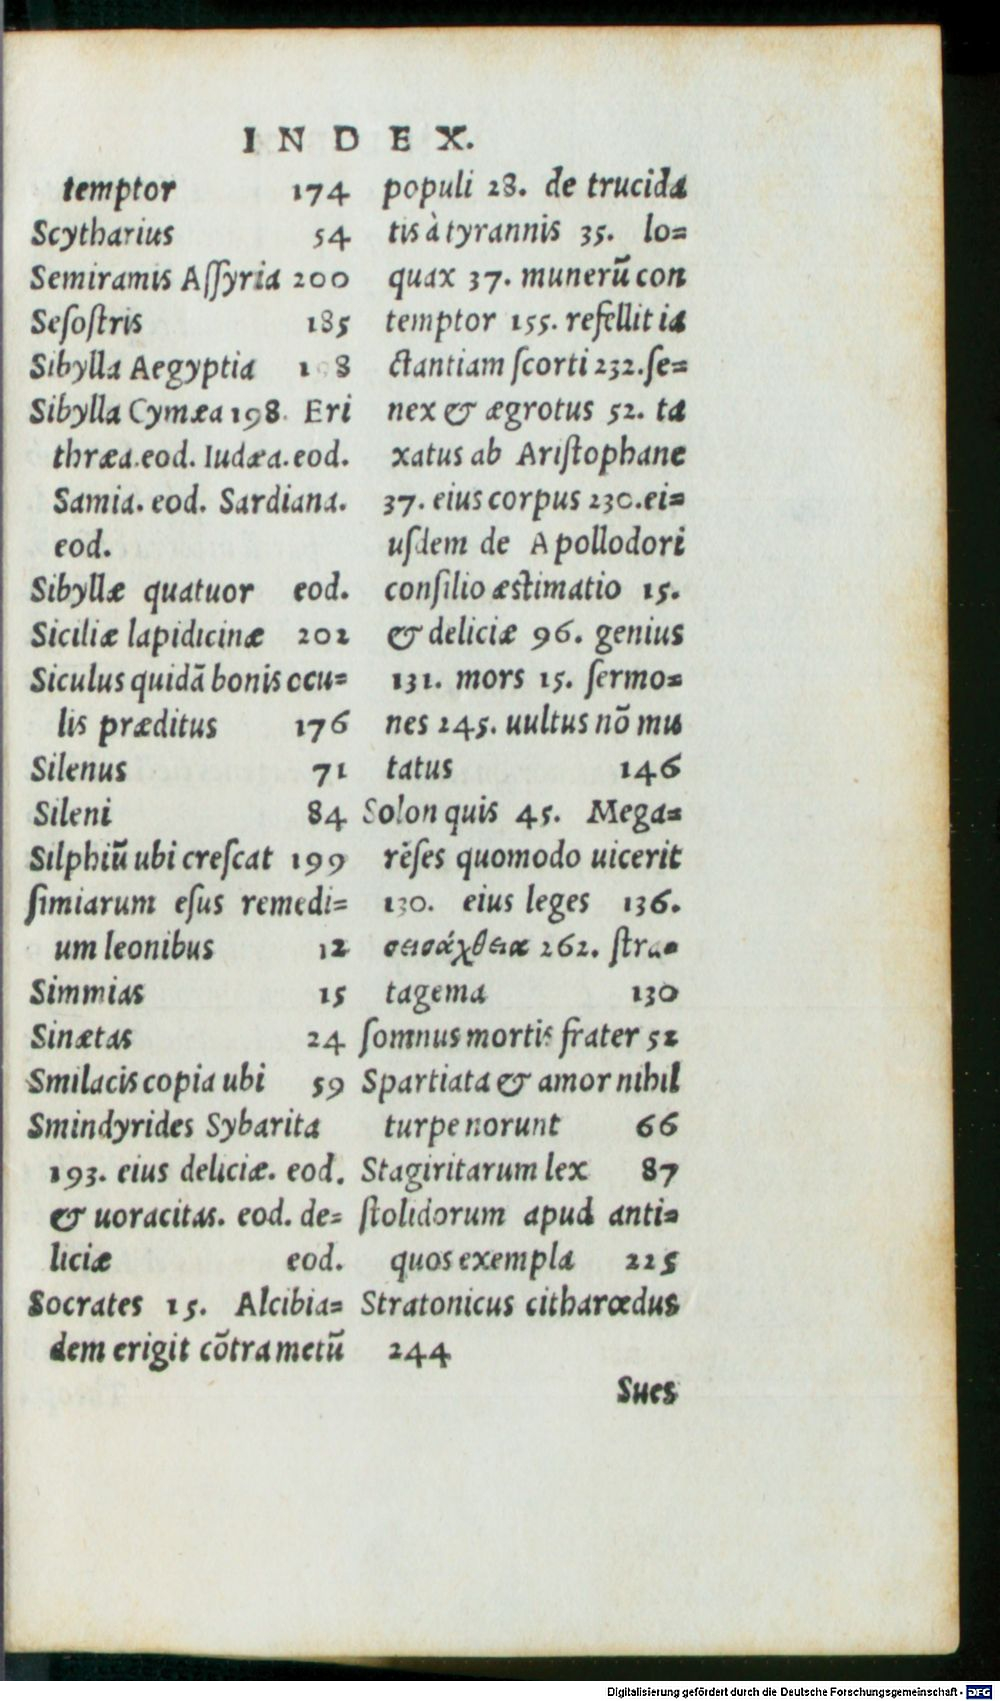 INDEX.
temptor 174
Scytharius 54
Semiramis Aſſyria 200
Seſoſtris 185
Sibylla Aegyptia 198
Sibylla Cymæa 198. Eri
thræa.eod. Iudæa.eod.
Samia. eod. Sardiana.
eod.
Sibyllæ quatuor eod.
Siciliæ lapidicinæ 202
Siculus quidā bonis ocu=
lis præditus 176
Silenus 71
Sileni 84
Silphiū ubi creſcat 199
ſimiarum eſus remedi=
um leonibus 12
Simmias 15
Sinætas 24
Smilacis copia ubi 59
Smindyrides Sybarita
193. eius deliciæ. eod.
& uoracitas. eod. de=
liciæ eod.
Socrates 15. Alcibia=
dem erigit cōtra metū
populi 28. de trucida
tis à tyrannis 35. lo=
quax 37. munerū con
temptor 155. refellit ia
ctantiam ſcorti 232. ſe=
nex & ægrotus 52. ta
xatus ab Ariſtophane
37. eius corpus 230. ei=
uſdem de Apollodori
conſilio æstimatio 15.
& deliciæ 96. genius
131. mors 15. ſermo=
nes 245. uultus nō mu
tatus 146
Solon quis 45. Mega=
rēſes quomodo uicerit
130. eius leges 136.
σεισάχθεια 262. ſtra=
tagema 130
ſomnus mortis frater 52
Spartiata & amor nihil
turpe norunt 66
Stagiritarum lex 87
ſtolidorum apud anti=
quos exempla 225
Stratonicus citharœdus
244
Sues
Digitalisierung gefördert durch die Deutsche Forschungsgemeinschaft - DFG